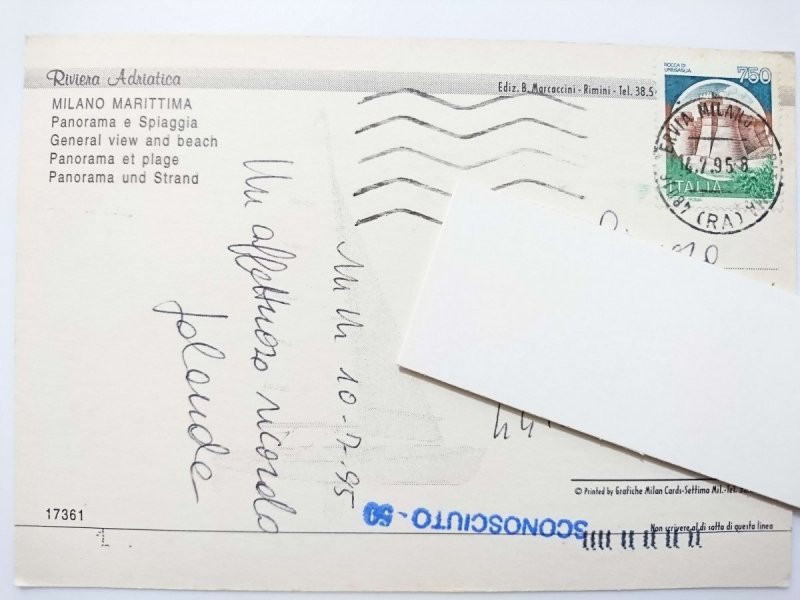 Riviera Adriatica
MILANO MARITTIMA
Panorama e Spiaggia
General view and beach
Panorama et plage
Panorama und Strand
Ediz. B. Marcaccini - Rimini - Tel. 38.5
ROCCA DI URBISAGLIA
750
ITALIA
ERVIA MILANO
.7.95.8
48015 (RA)
MM 10-7-95
Un affettuoso ricordo
Jolanda
© Printed by Grafiche Milan Cards-Settimo Mil.-Tel.
SCONOSCIUTO - 50
Non scrivere al di sotto di questa linea
17361
1